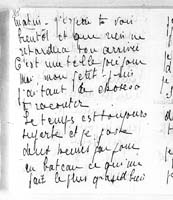 matin - j'espère te voir
bientôt et que rien ne
retardera ton arrivée
C'est une telle joie pour
moi, mon petit
j'ai tant de choses à
te raconter
Le temps est toujours
superbe et je passe
deux heures par jour
en bateau ce qui me
fait le plus grand bien